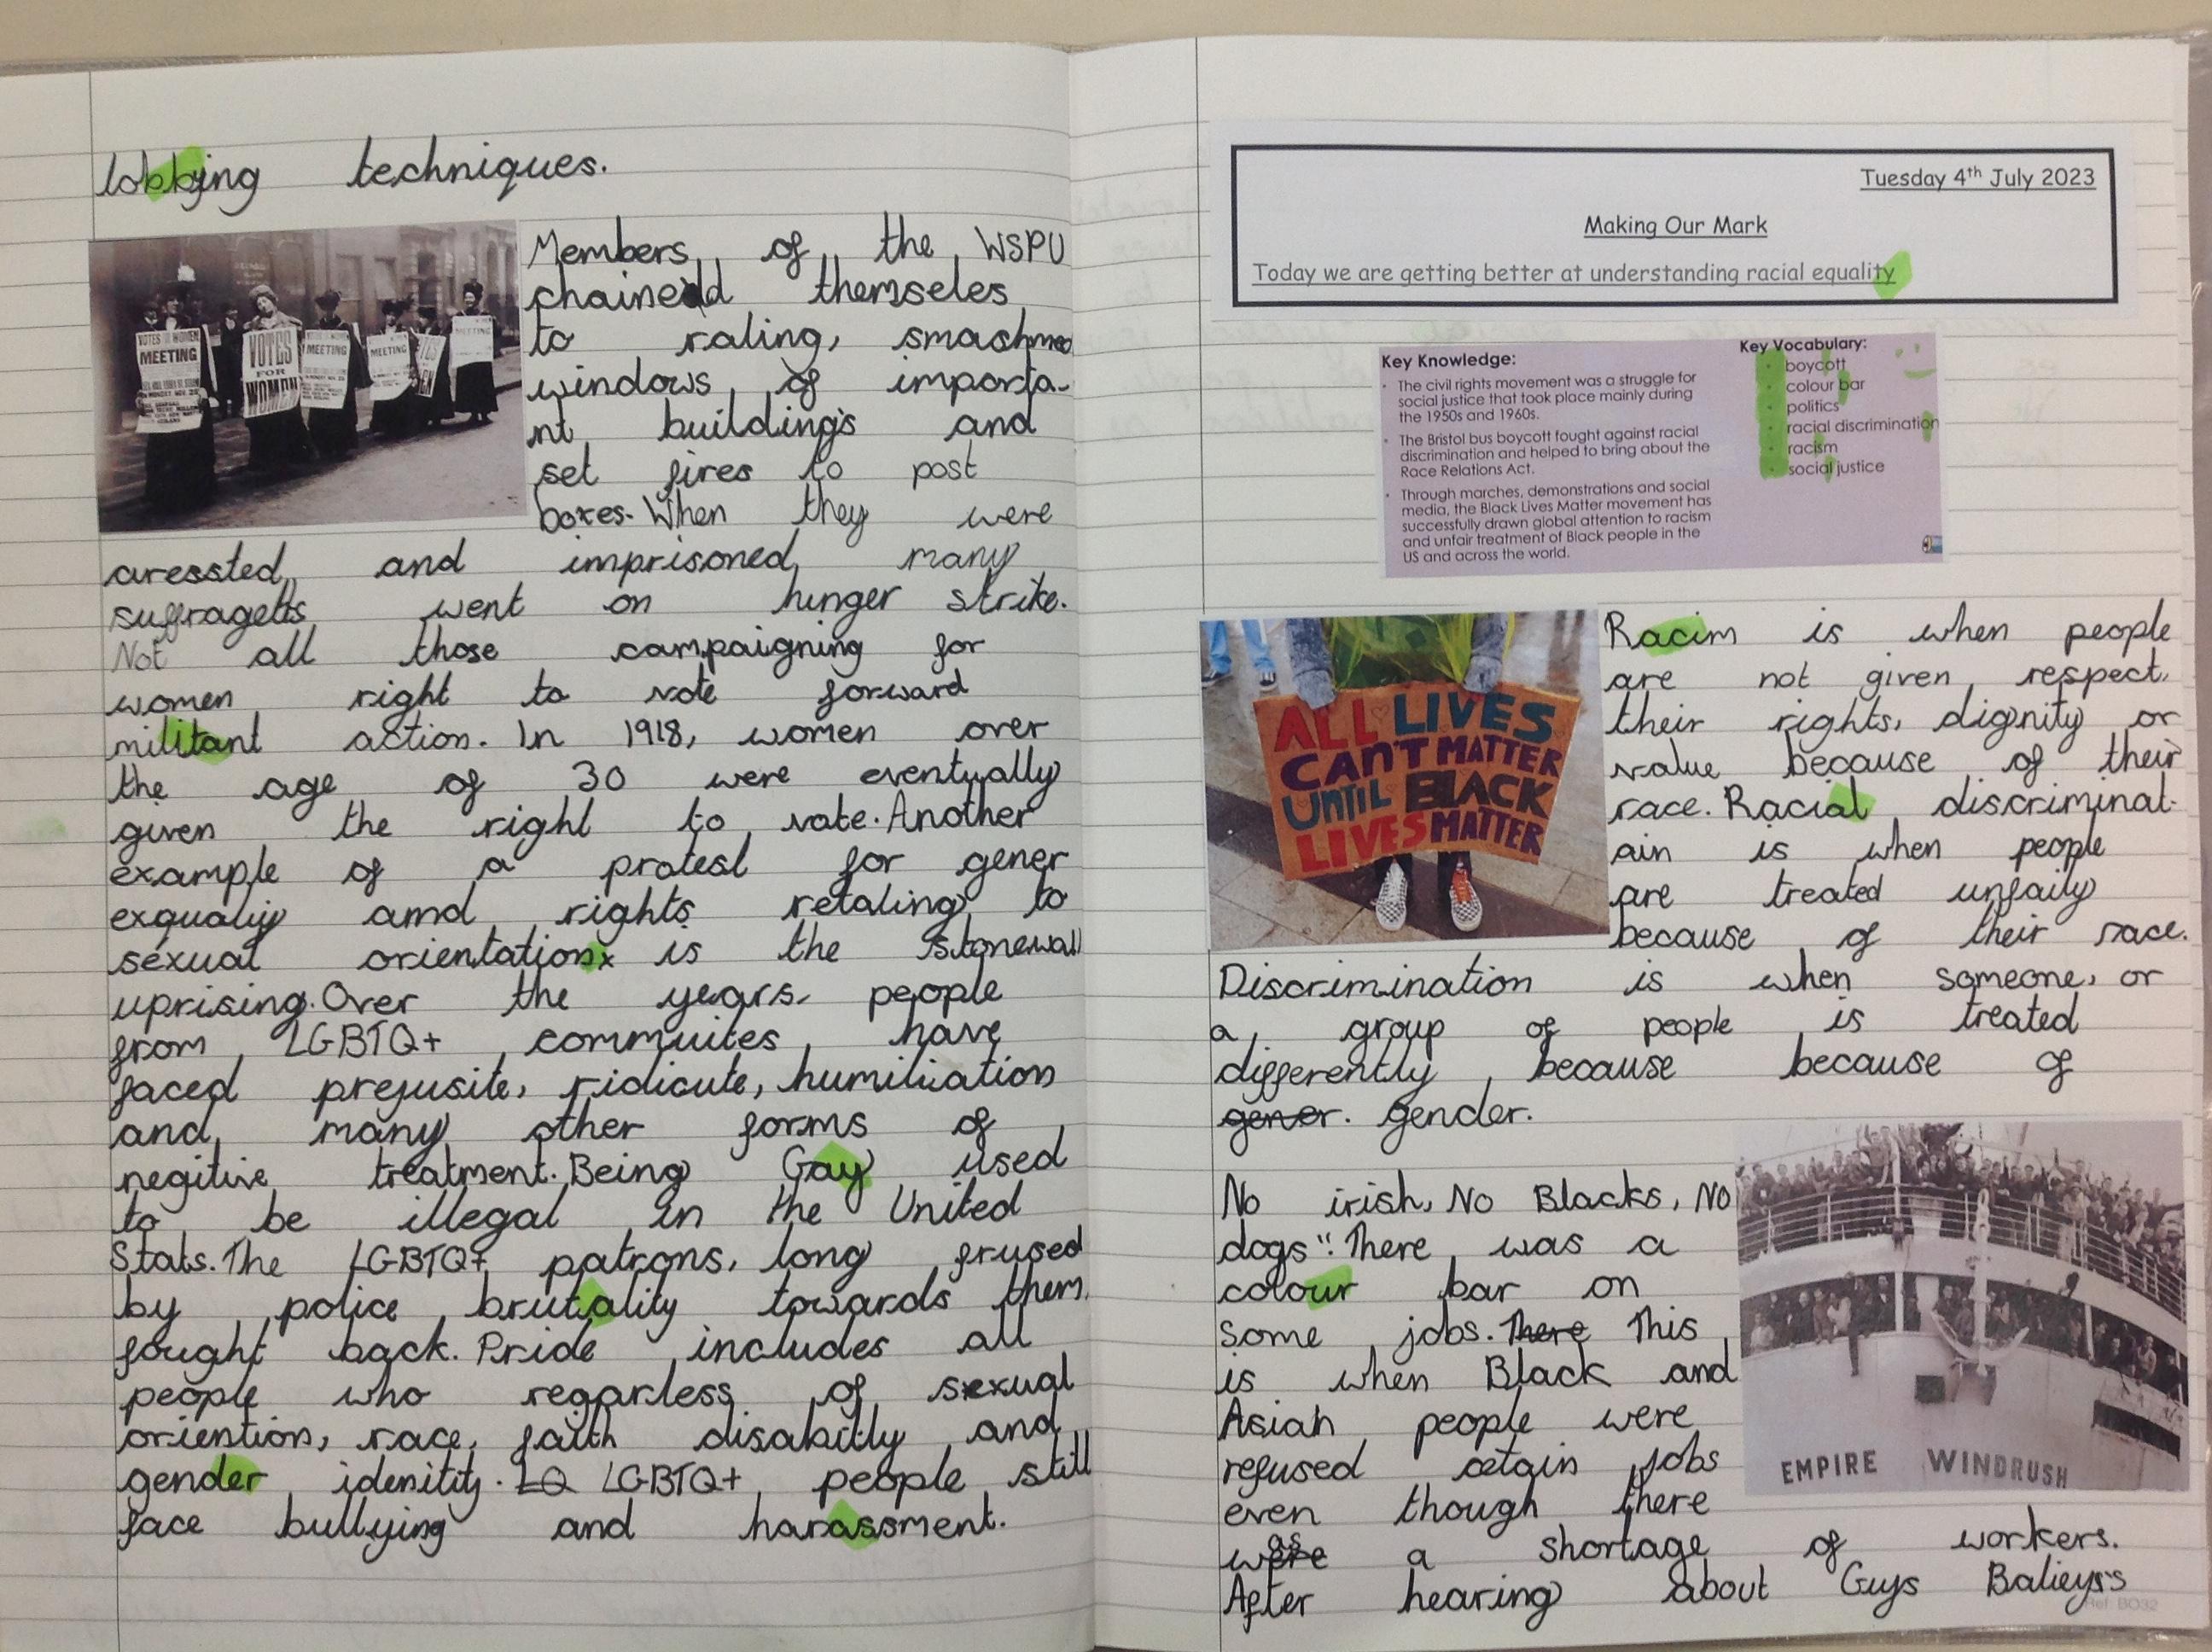 lobbying techniques.
VOTES FOR WOMEN
MEETING
VOTES
FOR
WOMEN
MEETING
MEETING
MEETING
Members of the WSPU
chained themseles
to raling, smashing
windows of importa-
nt buildings and
set fires to post
boxes. When they were
aressted, and imprisoned, many
suffragetts went on hunger strike.
Not all those campaigning for
women right to vote forward
militant action. In 1918, women over
the age of 30 were eventually
given the right to vote. Another
example of a protest for gener
exqualiy amd rights retaling to
sexual orientation is the stonewall
uprising. Over the years, people
from LGBTQ+ commuites have
faced prejusite, ridicute, humiliation
and many other forms of
negitive treatment. Being Gay used
to be illegal in the United
Stats. The LGBTQ+ patrons, long frused
by police brutality towards them,
fought back. Pride includes all
people who regarless of sexual
oriention, race, faith disabitly and
gender idenitity. LQ LGBTQ+ people still
face bullying and harassment.
Tuesday 4th July 2023
Making Our Mark
Today we are getting better at understanding racial equality
Key Knowledge:
• The civil rights movement was a struggle for
social justice that took place mainly during
the 1950s and 1960s.
• The Bristol bus boycott fought against racial
discrimination and helped to bring about the
Race Relations Act.
• Through marches, demonstrations and social
media, the Black Lives Matter movement has
successfully drawn global attention to racism
and unfair treatment of Black people in the
US and across the world.
Key Vocabulary:
• boycott
• colour bar
• politics
• racial discrimination
• racism
• social justice
ALL LIVES
CAN'T MATTER
UNTIL BLACK
LIVES MATTER
Racim is when people
are not given respect,
their rights, dignity or
value because of their
race. Racial discriminat-
ain is when people
are treated unfaily
because of their race.
Discrimination is when someone, or
a group of people is treated
differently because because of
gener. gender.
No irish, No Blacks, NO
dogs". There was a
colour bar on
some jobs. There This
is when Black and
Asian people were
refused cetain jobs
even though there
was a shortage of workers.
After hearing about Guys Balieys's
EMPIRE WINDRUSH
Ref: BO32